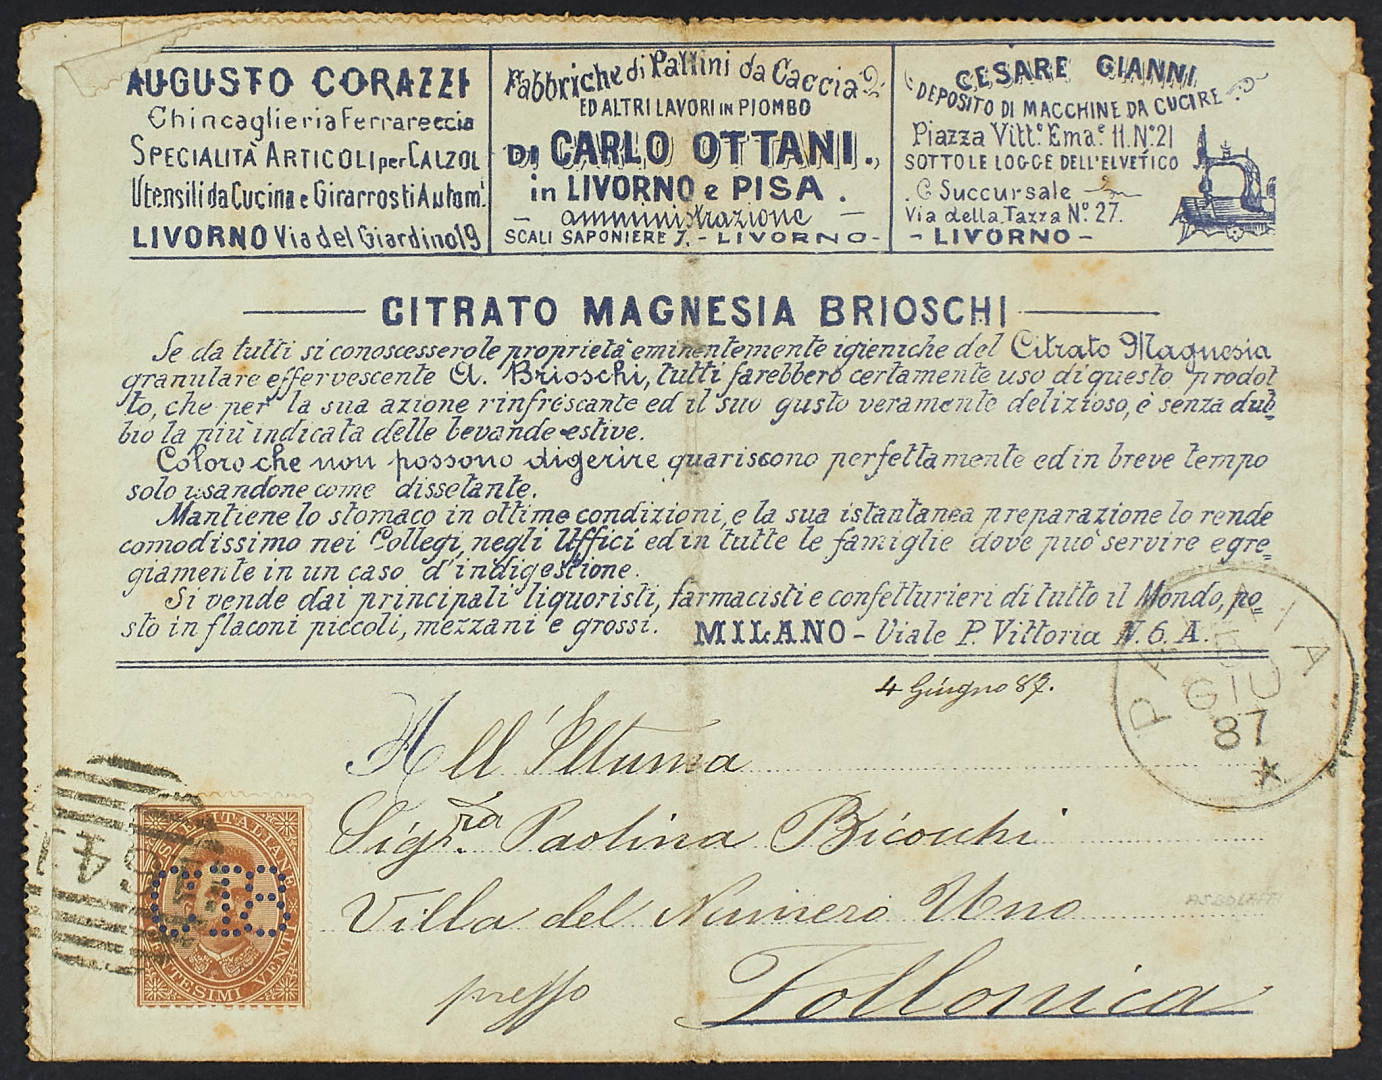 AUGUSTO CORAZZI
Chincaglieria Ferrareccia
SPECIALITÀ ARTICOLI per CALZOL
Utensili da Cucina e Girarrosti Autom.
LIVORNO Via del Giardino 19
Fabbriche di Pallini da Caccia
ED ALTRI LAVORI IN PIOMBO
DI CARLO OTTANI.
in LIVORNO e PISA.
amministrazione
SCALI SAPONIERE 7. - LIVORNO -
CESARE GIANNI
DEPOSITO DI MACCHINE DA CUCIRE
Piazza Vitt.º Ema.e II. Nº 21
SOTTO LE LOGGE DELL'ELVETICO
Succursale
Via della Tazza Nº 27.
- LIVORNO -
CITRATO MAGNESIA BRIOSCHI
Se da tutti si conoscessero le proprietà eminentemente igieniche del Citrato Magnesia
granulare effervescente A. Brioschi, tutti farebbero certamente uso di questo prodot
to, che per la sua azione rinfrescante ed il suo gusto veramente delizioso, è senza dub=
bio la più indicata delle bevande estive.
Coloro che non possono digerire quariscono perfettamente ed in breve tempo
solo usandone come dissetante.
Mantiene lo stomaco in ottime condizioni, e la sua istantanea preparazione lo rende
comodissimo nei Collegi, negli Uffici ed in tutte le famiglie dove può servire egre=
giamente in un caso d'indigestione.
Si vende dai principali liquoristi, farmacisti e confetturieri di tutto il Mondo, po=
sto in flaconi piccoli, mezzani e grossi. MILANO - Viale P. Vittoria N. 6. A.
4 Giugno 87.
PAVIA
GIU
87
All' Illuma
Sigra Paolina Bicocchi
Villa del Numero Uno
presso Follonica
CENTESIMI VENTI